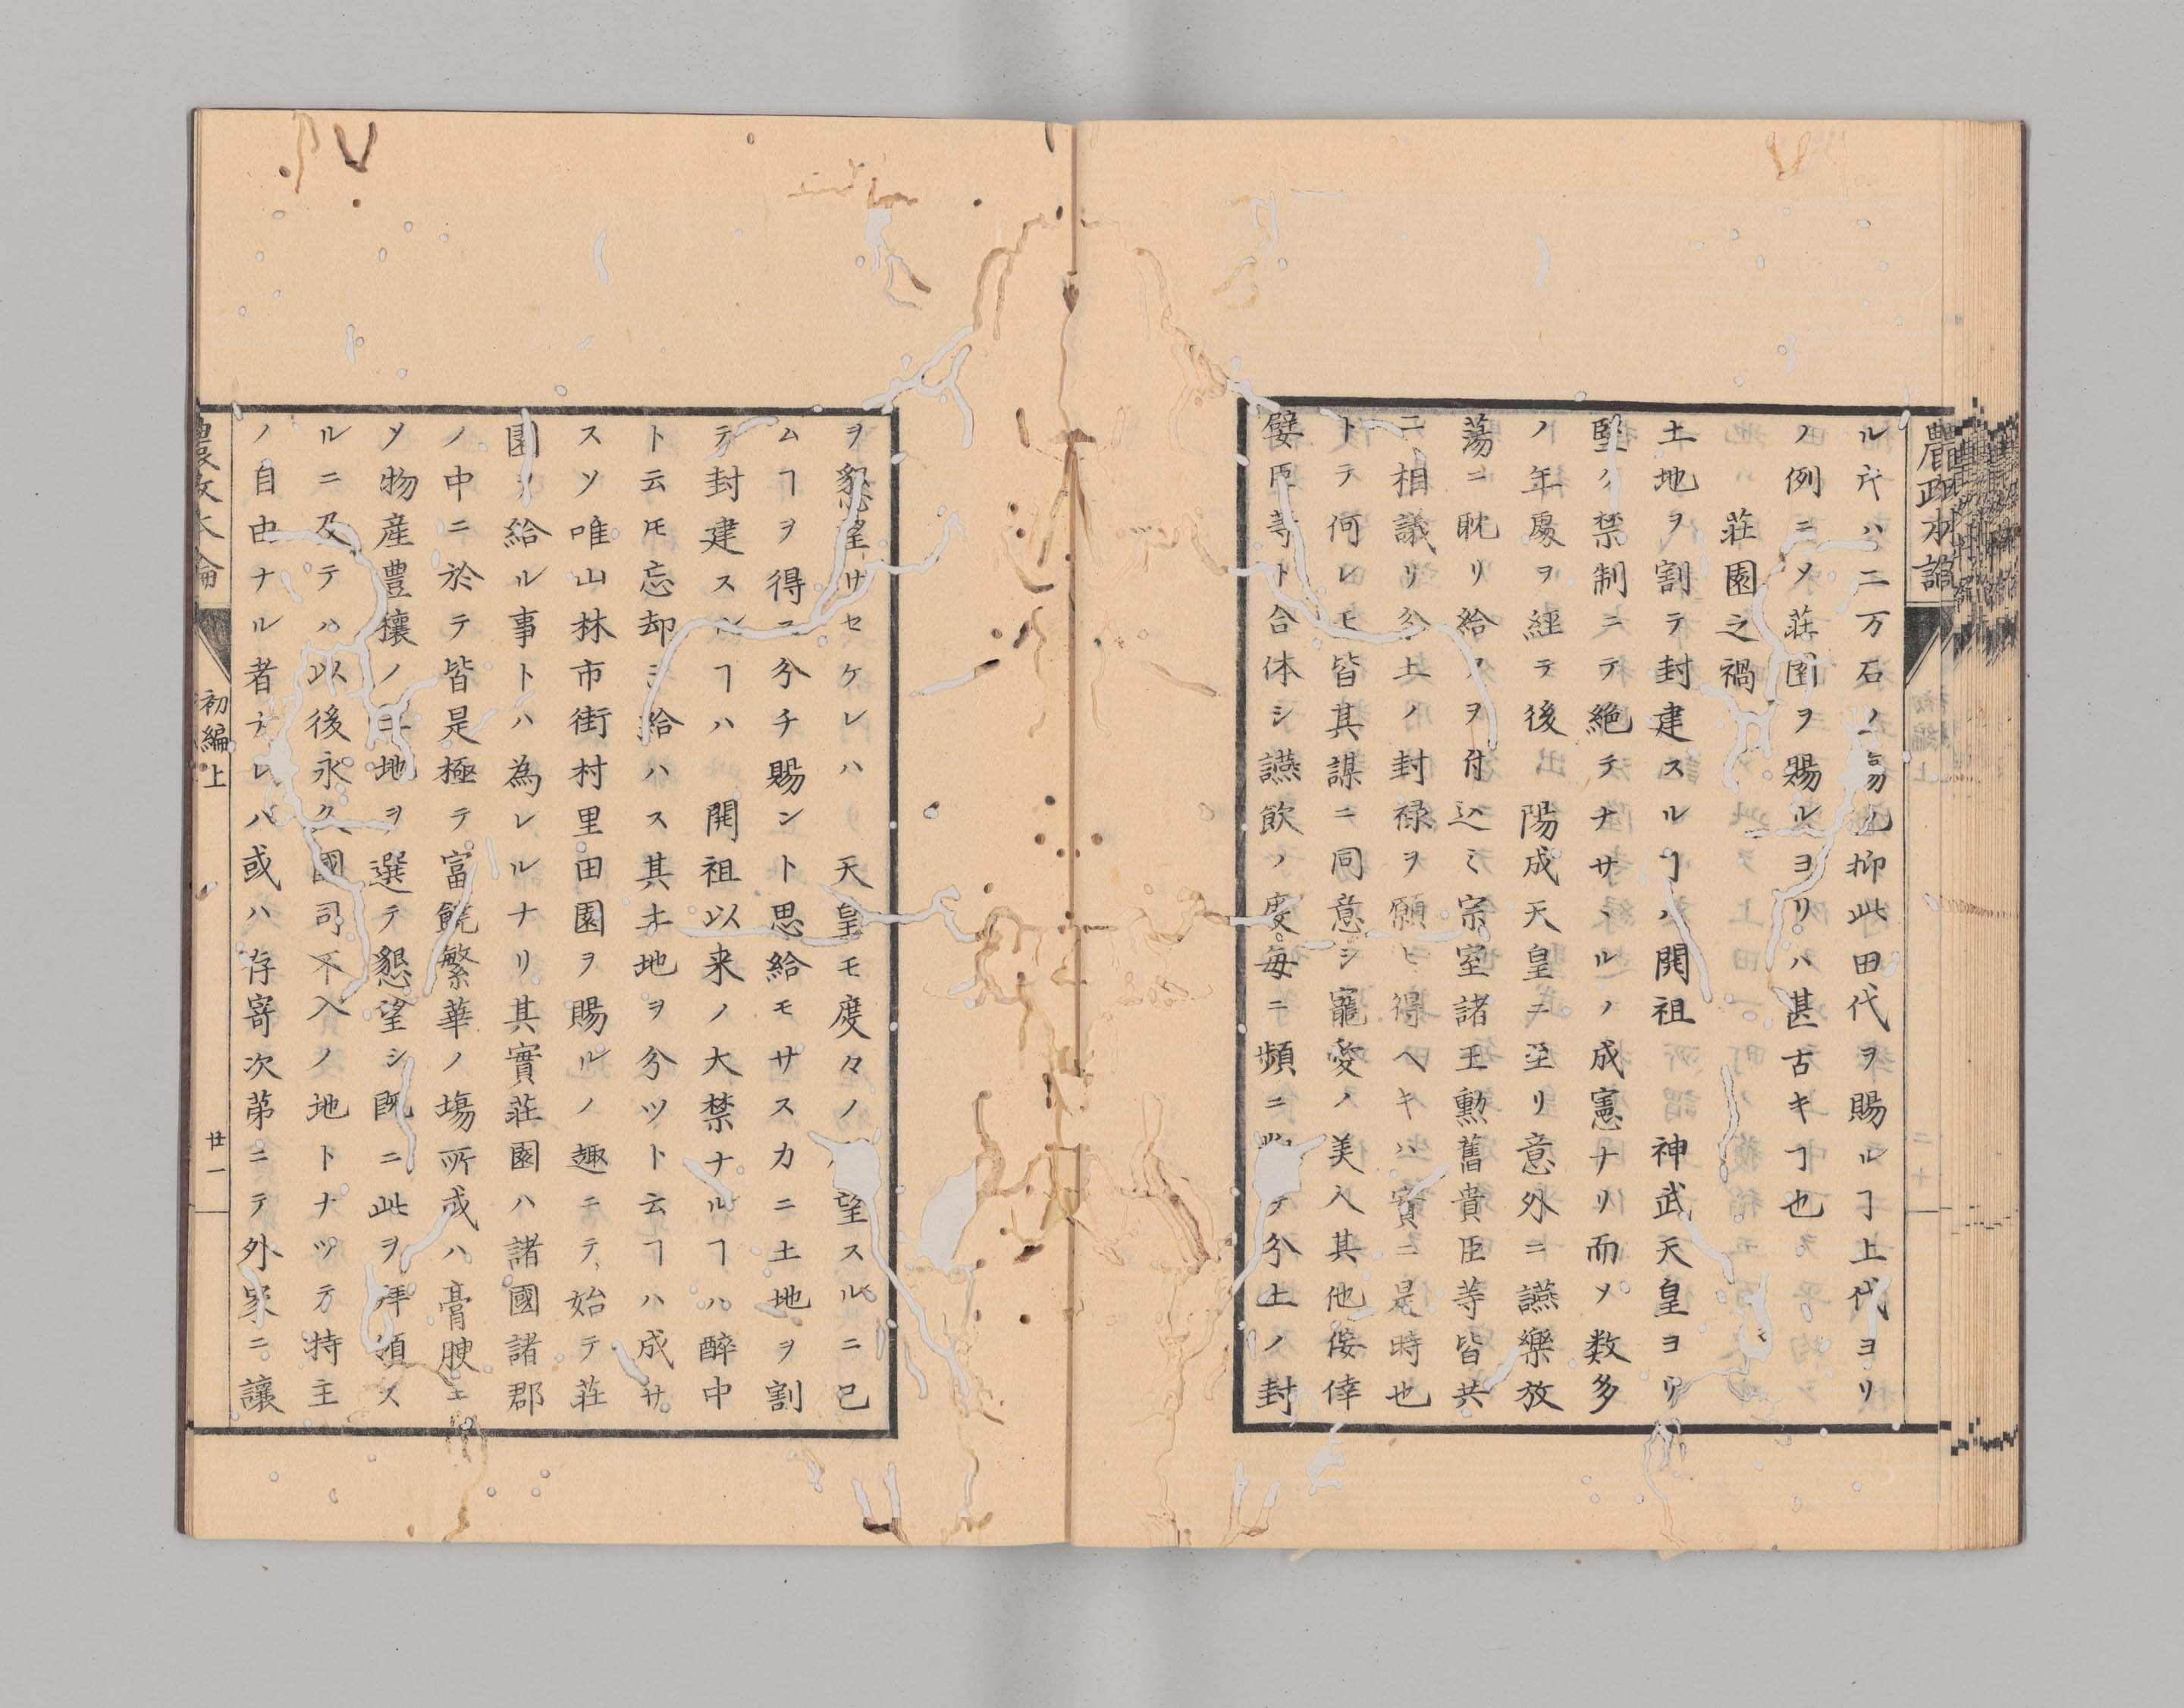 農政本論
ルトハ二万石ノ場也抑此田代ヲ賜ルヿ上代ヨリ
ノ例ニメ荘園ヲ賜ルヨリハ甚古キヿ也
荘園之禍
土地ヲ割テ封建スルヿハ開祖 神武天皇ヨリ
堅ク禁制ニテ絶テナサヽルノ成憲ナリ而メ数多
ノ年處ヲ經テ後 陽成天皇ニ至リ意外ニ讌樂放
蕩ニ耽リ給フヲ付込ミ宗室諸王勲舊貴臣等皆共
ニ相議リ分土ノ封禄ヲ願ヒ得ヘキハ實ニ是時也
トテ何レモ皆其謀ニ同意シ寵愛ノ美人其他侫倖
嬖臣等ト合体シ讌飲ノ度毎ニ頻ニ テ分土ノ封
ヲ懇望サセケレハ 天皇モ度々ノ 望スルニ已
ムヿヲ得ス分チ賜ント思給モサスカニ土地ヲ割
テ封建スルヿハ 開祖以来ノ大禁ナルヿハ醉中
ト云𪜈忘却シ給ハス其土地ヲ分ツト云ヿハ成サ
スソ唯山林市街村里田園ヲ賜ルノ趣ニテ始テ荘
園ヲ給ル事トハ為レルナリ其實荘園ハ諸國諸郡
ノ中ニ於テ皆是極テ富饒繁華ノ塲所或ハ膏腴
ソ物産豊穰ノ土地ヲ選テ懇望シ既ニ此ヲ拝領ス
ルニ及テハ以後永久國司不入ノ地トナツテ持主
ノ自由ナル者ナレハ或ハ存寄次第ニテ外家ニ讓
農政本論
初編上
廿一